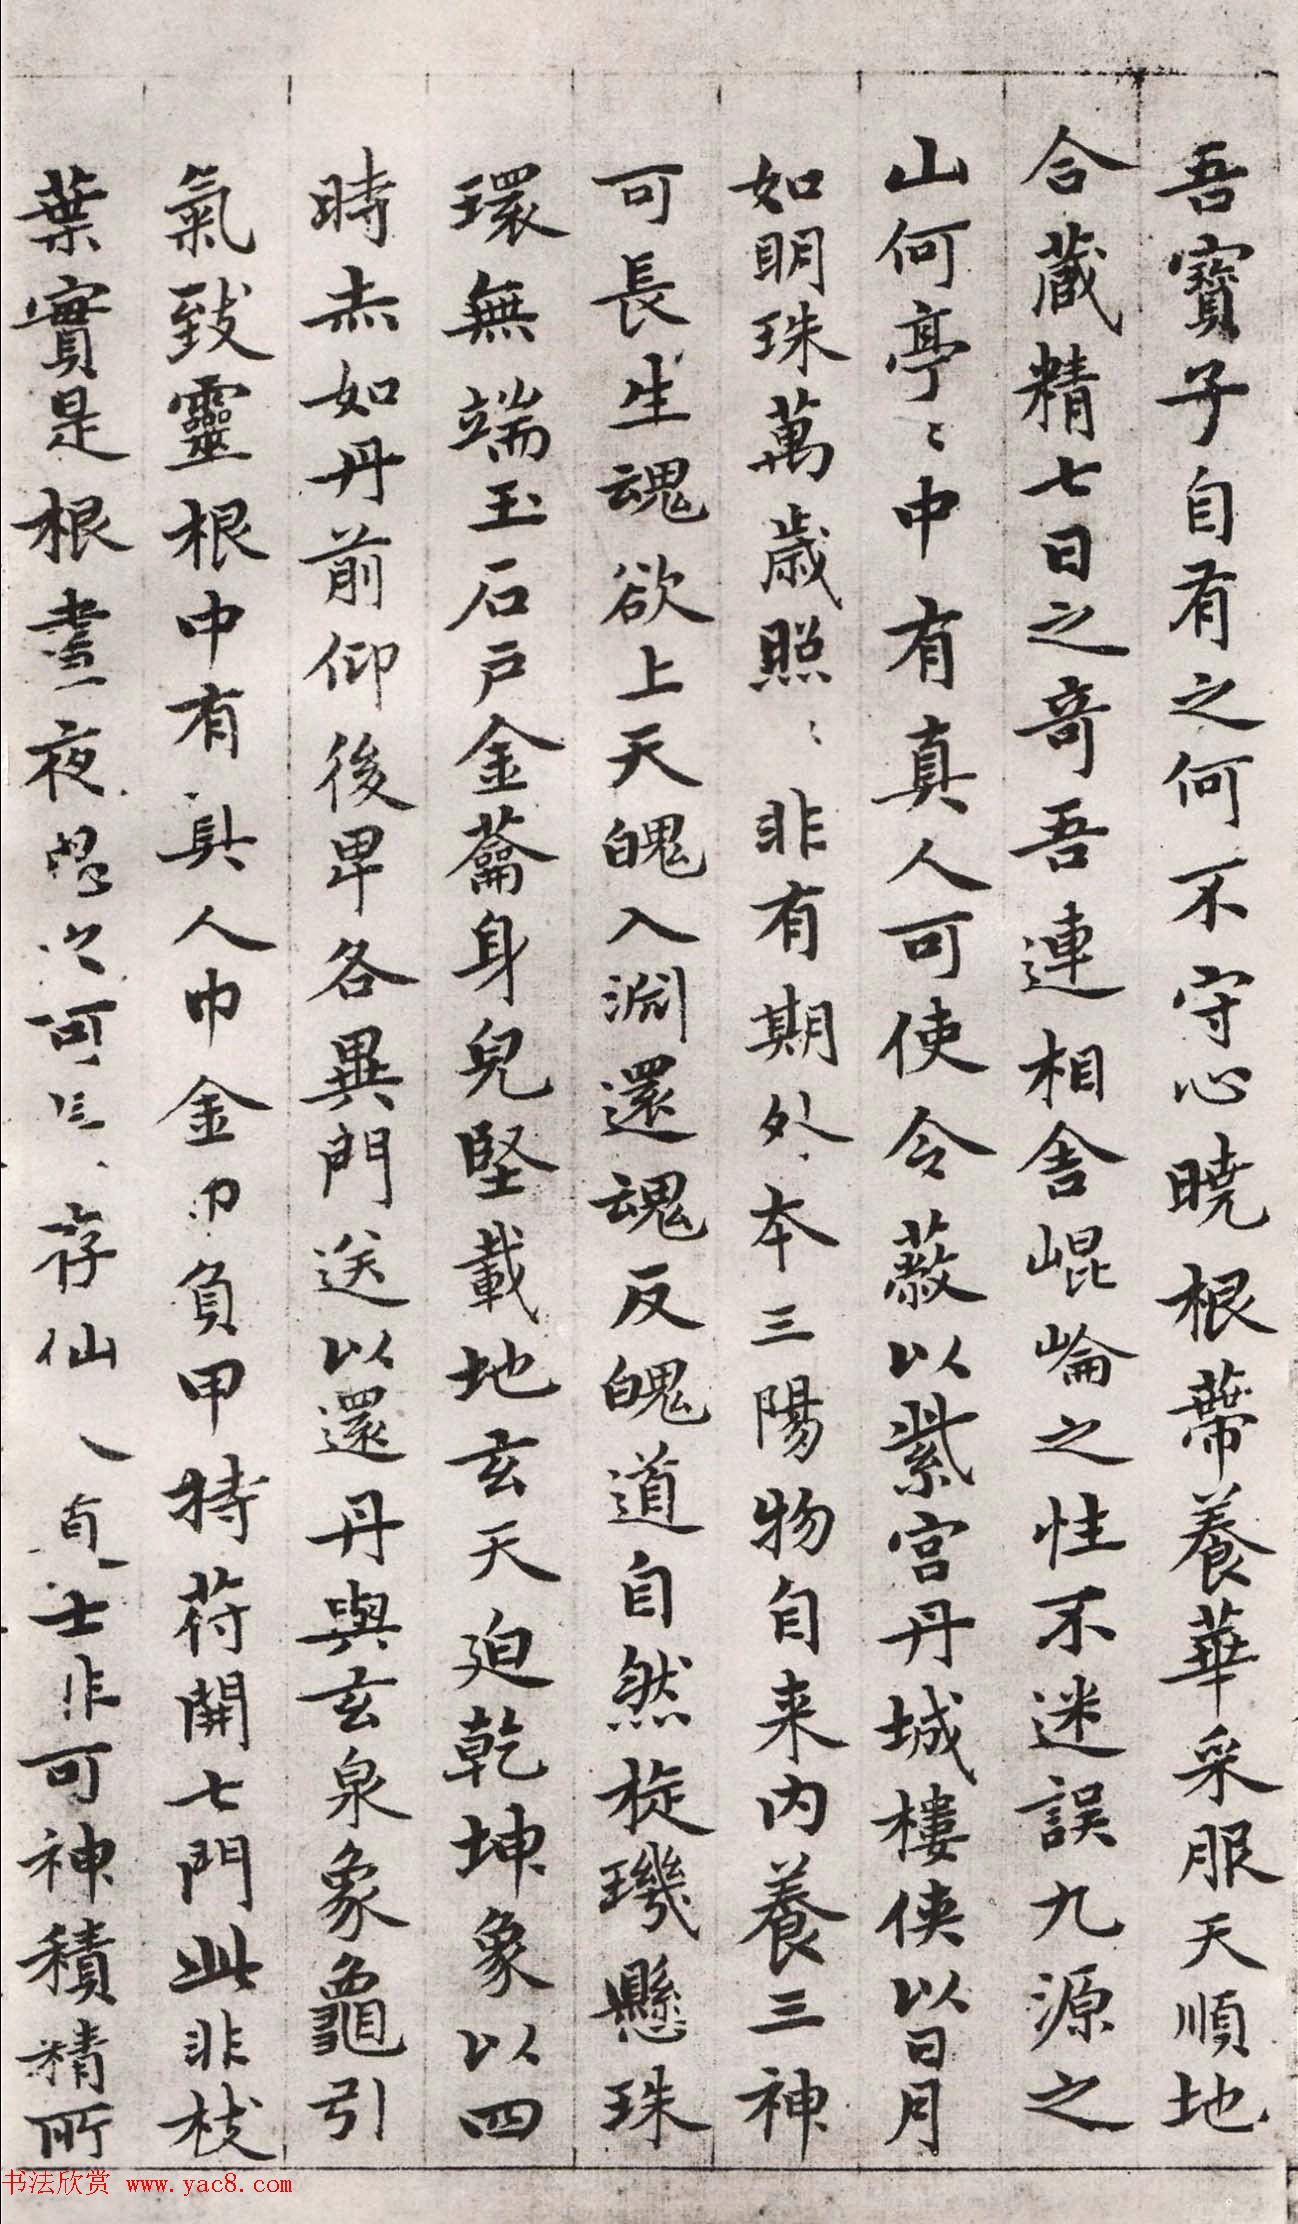 吾寶子自有之何不守心曉根蔕養華采服天順地
合藏精七日之竒吾連相舎崐崘之性不迷誤九源之
山何亭〻中有真人可使令蔽以紫宫丹城樓侠以日月
如明珠萬歳照〻非有期外本三陽物自来内養三神
可長生魂欲上天魄入淵還魂反魄道自然旋璣懸珠
環無端玉石戶金蘥身皃堅載地玄天迫乾坤象以四
時赤如丹前仰後卑各異門送以還丹與玄泉象龜引
氣致靈根中有真人巾金巾負甲持苻開七門此非枝
葉實是根晝夜思之可長存仙人道士非可神積精所
书法欣赏 www.yac8.com